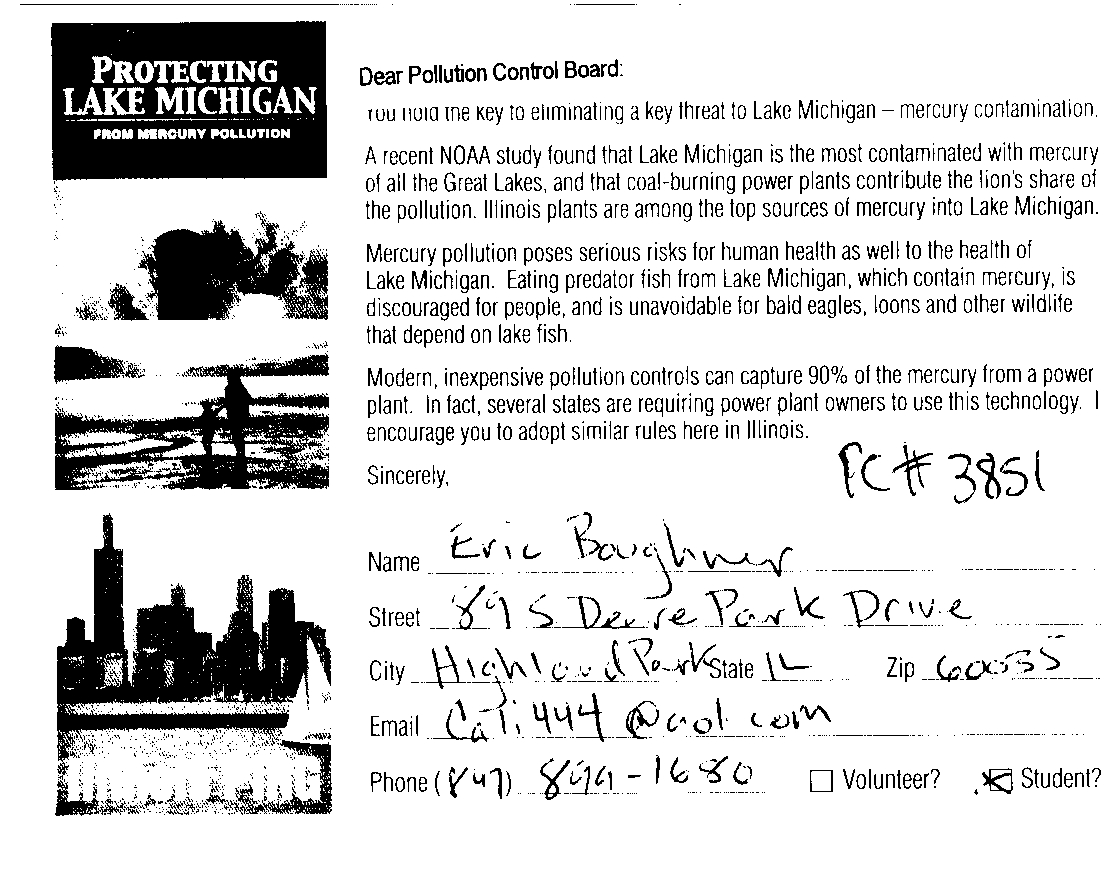 PROTECTING
LAKE MICHIGAN
FROM MERCURY POLLUTION
Dear Pollution Control Board:
You hold the key to eliminating a key threat to Lake Michigan – mercury contamination.
A recent NOAA study found that Lake Michigan is the most contaminated with mercury
of all the Great Lakes, and that coal-burning power plants contribute the lion's share of
the pollution. Illinois plants are among the top sources of mercury into Lake Michigan.
Mercury pollution poses serious risks for human health as well to the health of
Lake Michigan. Eating predator fish from Lake Michigan, which contain mercury, is
discouraged for people, and is unavoidable for bald eagles, loons and other wildlife
that depend on lake fish.
Modern, inexpensive pollution controls can capture 90% of the mercury from a power
plant. In fact, several states are requiring power plant owners to use this technology. I
encourage you to adopt similar rules here in Illinois.
Sincerely,
PC# 3851
Name Eric
Street 89 S Deere Park Drive
City Highland Park State IL Zip 60035
Email Cati444@aol.com
Phone (847) 899-1680 Volunteer? Student?
ILLINOIS PIRG